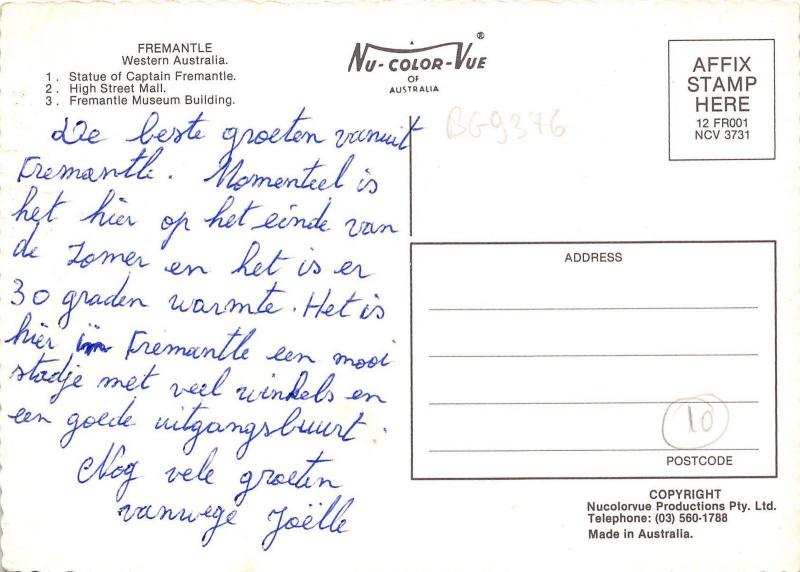 FREMANTLE
Western Australia.
1. Statue of Captain Fremantle.
2. High Street Mall.
3. Fremantle Museum Building.
De beste groeten vanuit
Fremantle. Momenteel is
het hier op het einde van
de zomer en het is er
30 graden warmte. Het is
hier in Fremantle een mooi
stadje met veel winkels en
een goede uitgangsbuurt.
Nog vele groeten
vanwege Joëlle
NU-COLOR-VUE ®
OF
AUSTRALIA
BG9376
AFFIX
STAMP
HERE
12 FR001
NCV 3731
ADDRESS
10
POSTCODE
COPYRIGHT
Nucolorvue Productions Pty. Ltd.
Telephone: (03) 560-1788
Made in Australia.